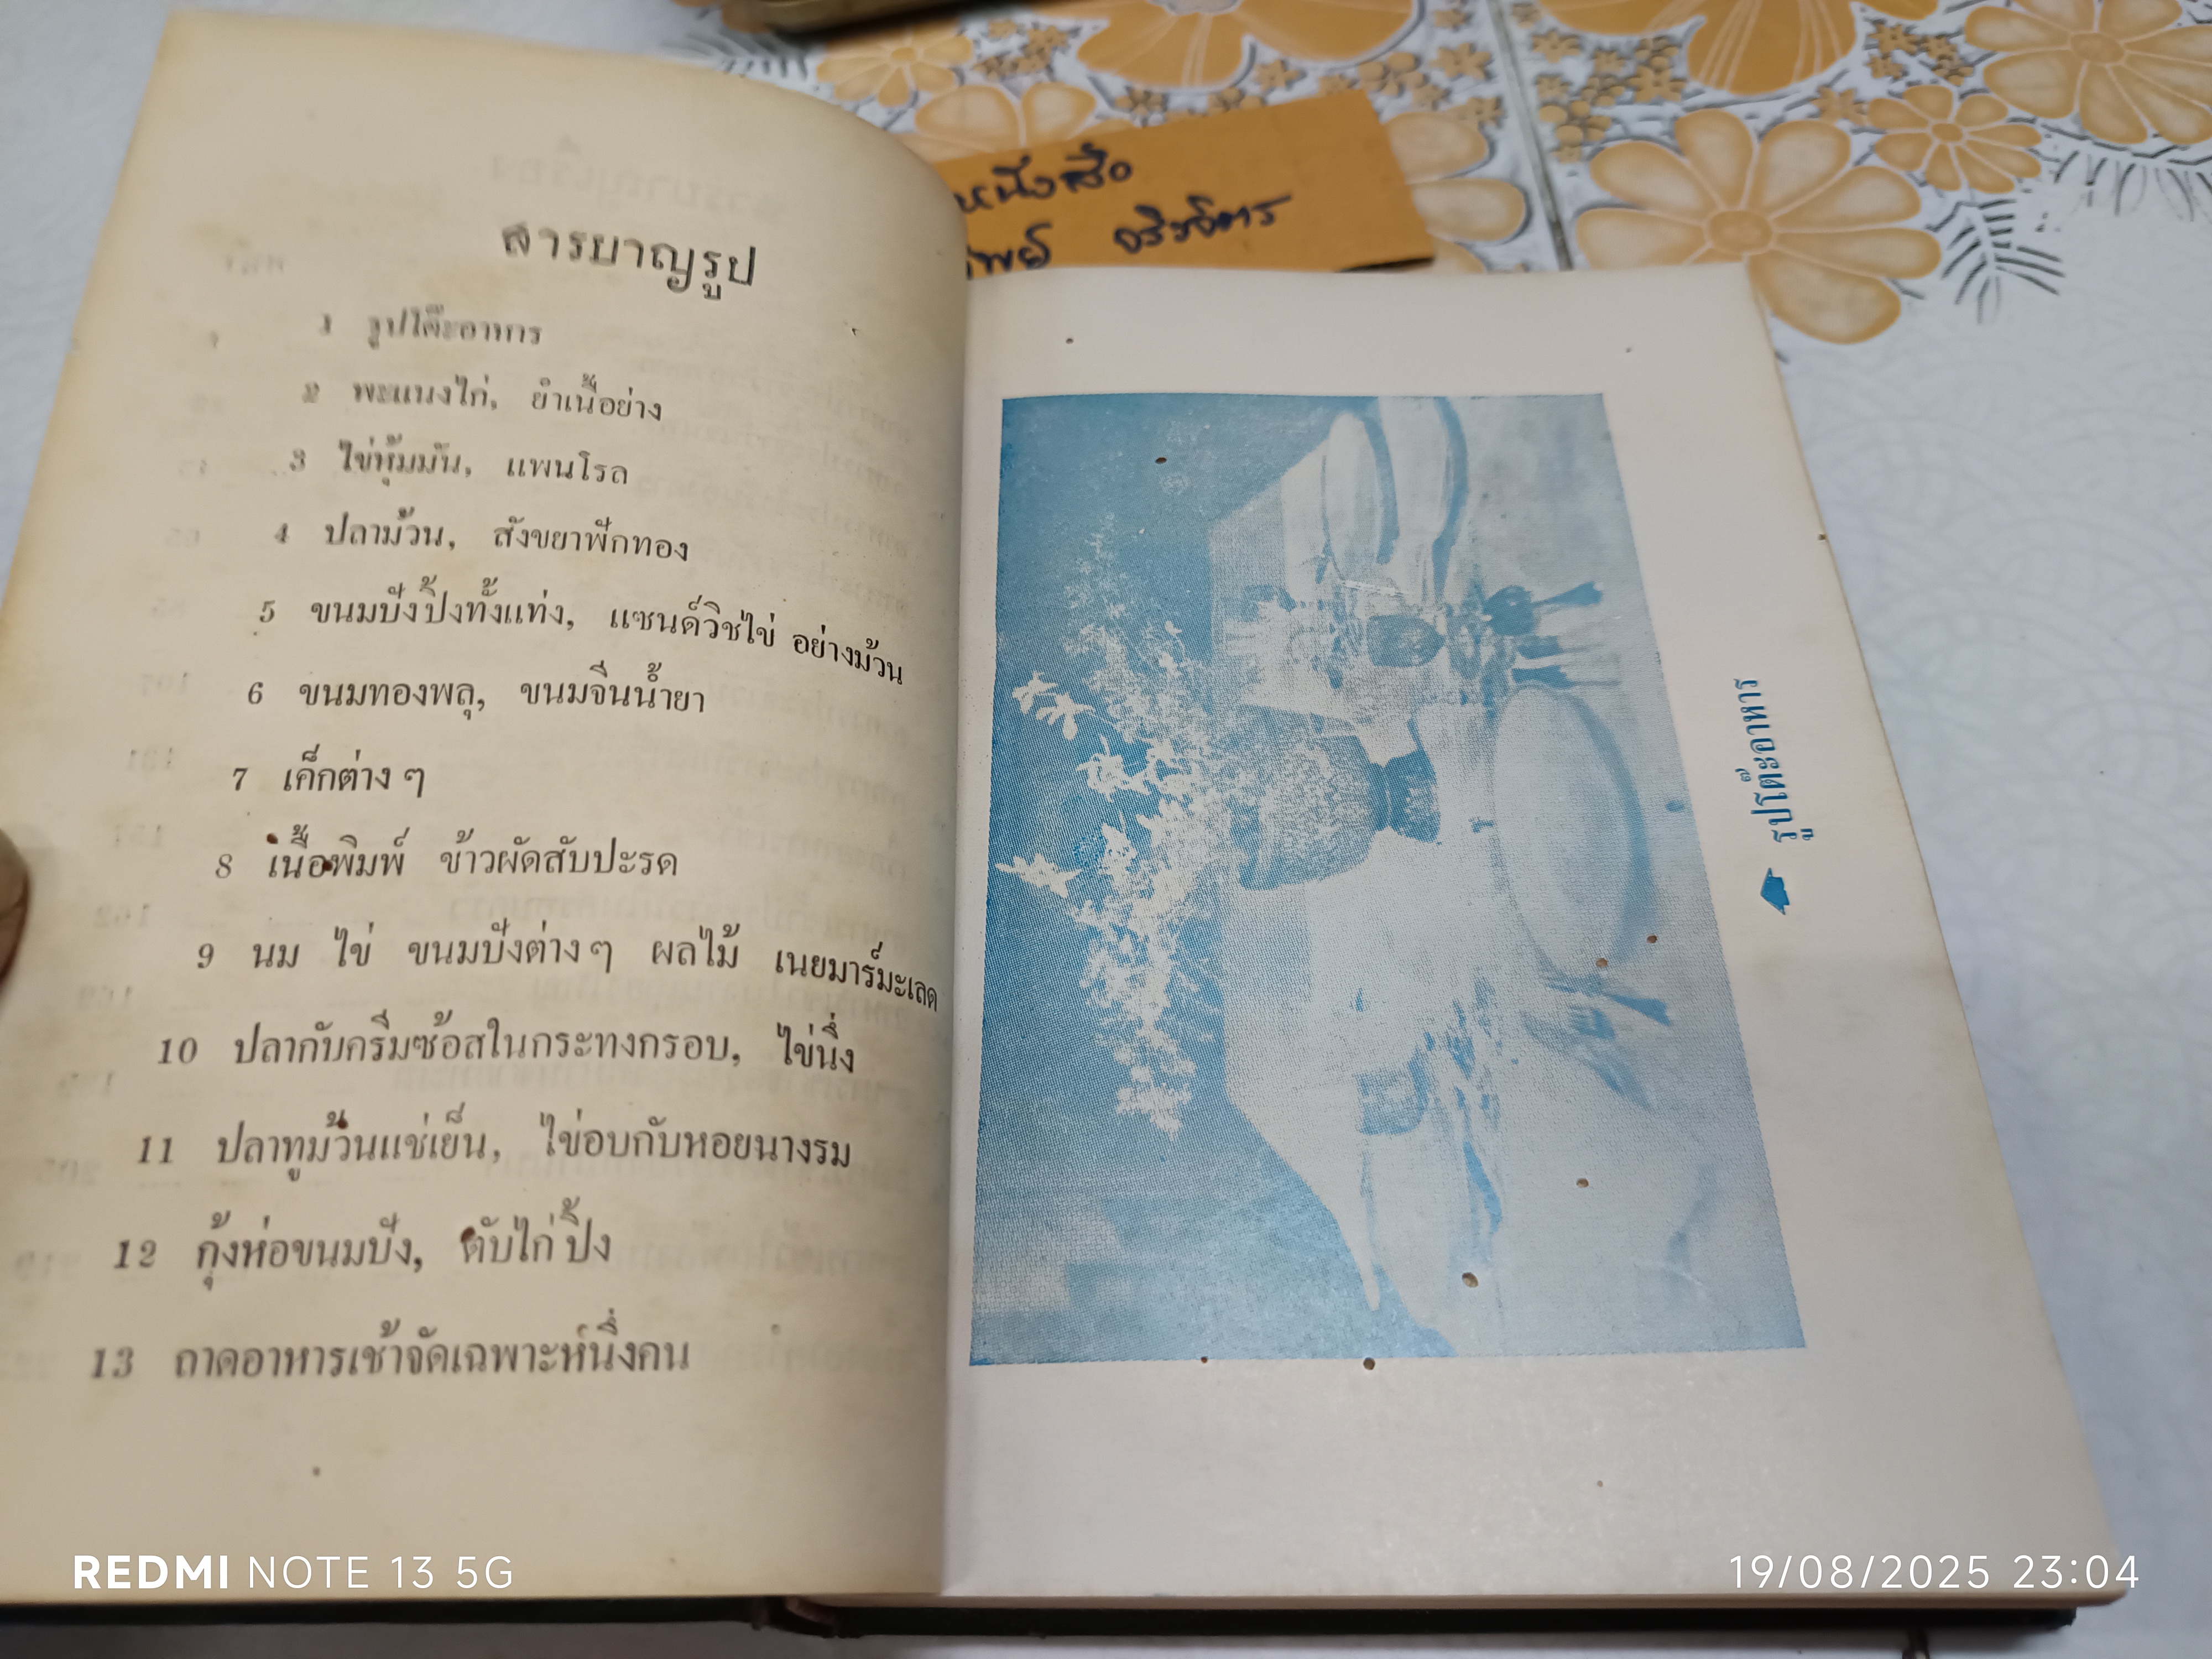 สารบาญรูป
1 รูปโต๊ะอาหาร
2 พะแนงไก่, ยำเนื้อย่าง
3 ไข่หุ้มมัน, แพนโรล
4 ปลาม้วน, สังขยาฟักทอง
5 ขนมปังปิ้งทั้งแท่ง, แซนด์วิชไข่ อย่างม้วน
6 ขนมทองพลุ, ขนมจีนน้ำยา
7 เค็กต่าง ๆ
8 เนื้อพิมพ์ ข้าวผัดสับปะรด
9 นม ไข่ ขนมปังต่าง ๆ ผลไม้ เนยมาร์มะเลด
10 ปลากับครีมซ้อสในกระทงกรอบ, ไข่นึ่ง
11 ปลาทูม้วนแช่เย็น, ไข่อบกับหอยนางรม
12 กุ้งห่อขนมปัง, ตับไก่ปิ้ง
13 ถาดอาหารเช้าจัดเฉพาะหนึ่งคน
หนังสือ
รูปโต๊ะอาหาร
REDMI NOTE 13 5G
19/08/2025 23:04